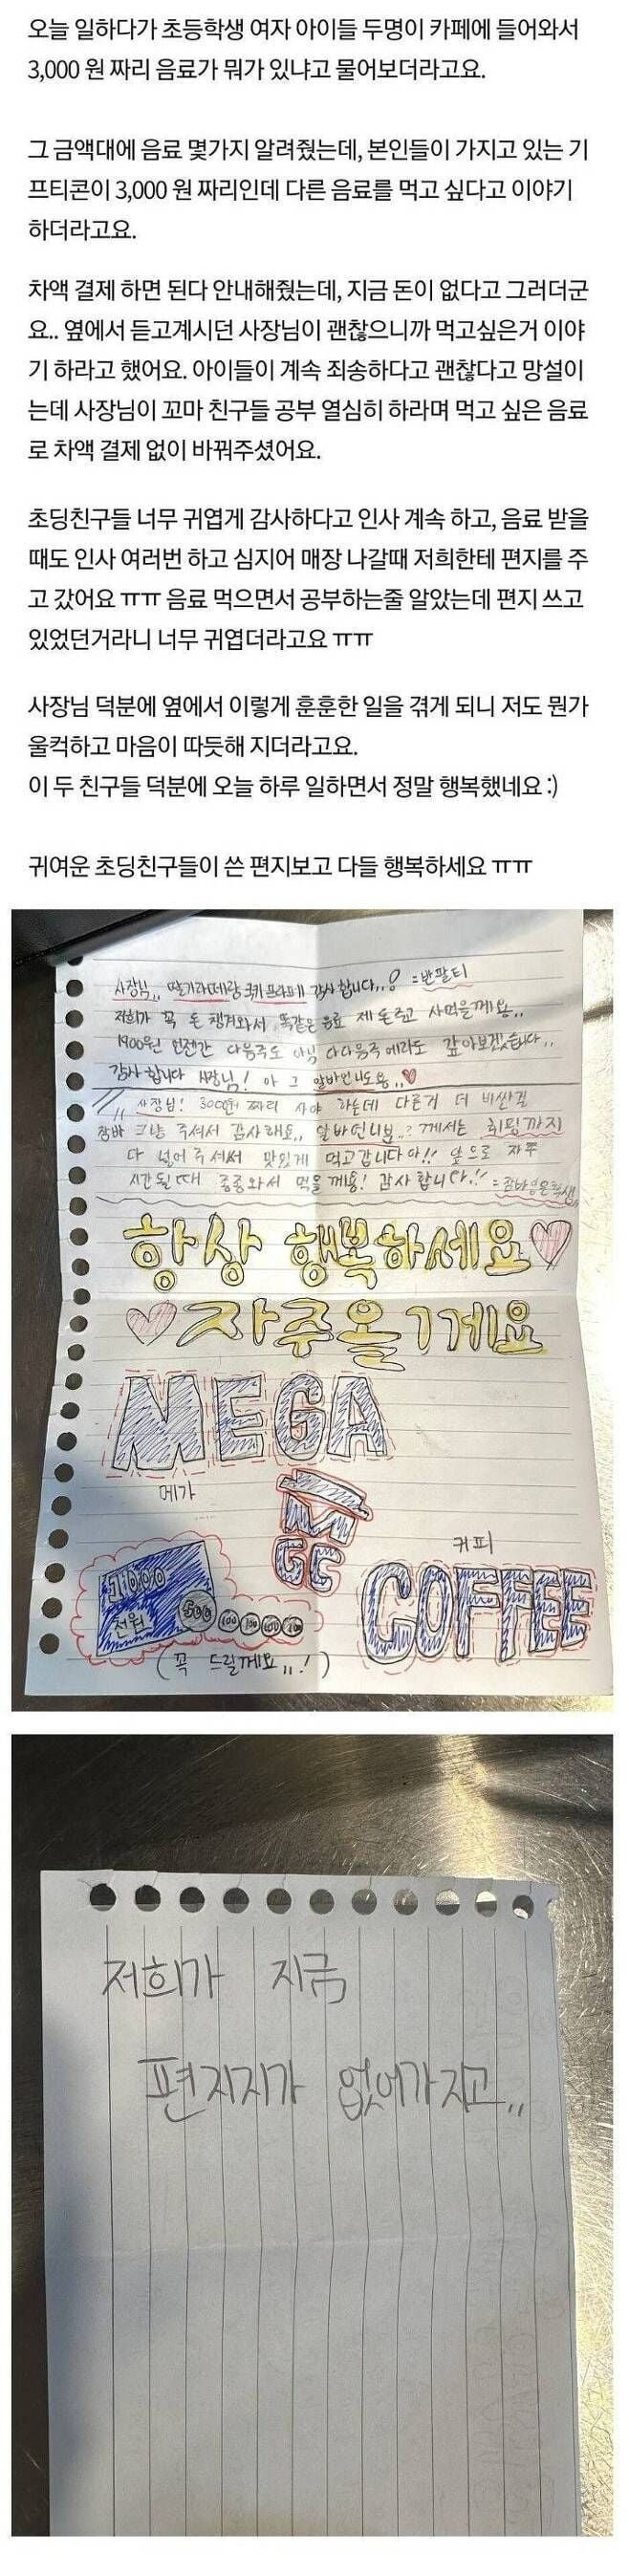 오늘 일하다가 초등학생 여자 아이들 두명이 카페에 들어와서
3,000 원 짜리 음료가 뭐가 있냐고 물어보더라고요.
그 금액대에 음료 몇가지 알려줬는데, 본인들이 가지고 있는 기
프티콘이 3,000 원 짜리인데 다른 음료를 먹고 싶다고 이야기
하더라고요.
차액 결제 하면 된다 안내해줬는데, 지금 돈이 없다고 그러더군
요.. 옆에서 듣고계시던 사장님이 괜찮으니까 먹고싶은거 이야
기 하라고 했어요. 아이들이 계속 죄송하다고 괜찮다고 망설이
는데 사장님이 꼬마 친구들 공부 열심히 하라며 먹고 싶은 음료
로 차액 결제 없이 바꿔주셨어요.
초딩친구들 너무 귀엽게 감사하다고 인사 계속 하고, 음료 받을
때도 인사 여러번 하고 심지어 매장 나갈때 저희한테 편지를 주
고 갔어요 ㅠㅠ 음료 먹으면서 공부하는줄 알았는데 편지 쓰고
있었던거라니 너무 귀엽더라고요 ㅠㅠ
사장님 덕분에 옆에서 이렇게 훈훈한 일을 겪게 되니 저도 뭔가
울컥하고 마음이 따듯해 지더라고요.
이 두 친구들 덕분에 오늘 하루 일하면서 정말 행복했네요 :)
귀여운 초딩친구들이 쓴 편지보고 다들 행복하세요 ㅠㅠ
사장님,, 딸기라떼랑 쿠키프라페 감사합니다..! =반팔티
저희가 꼭 돈 챙겨와서 똑같은 음료 제 돈주고 사먹을께요..
1900원 언젠간 다음주도 아님 다다음주 에라도 갚아보겠습니다..
감사합니다 사장님! 아 그 알바언니도용..♡
사장님! 3000원 짜리 사야 하는데 다른거 더 비싼걸
그냥 주셔서 감사해요,, 알바언니분..? 께서는 휘핑까지
다 넣어주셔서 맛있게 먹고갑니다아!! 앞으로 자주
시간될때 종종와서 먹을께용! 감사합니다!!
항상 행복하세요♡
♡자주올게요
MEGA
메가
M
GC
커피
COFFEE
1000
천원
500 100 100 100 100
(꼭 드릴께요,,!)
저희가 지금
편지지가 없어가지고..